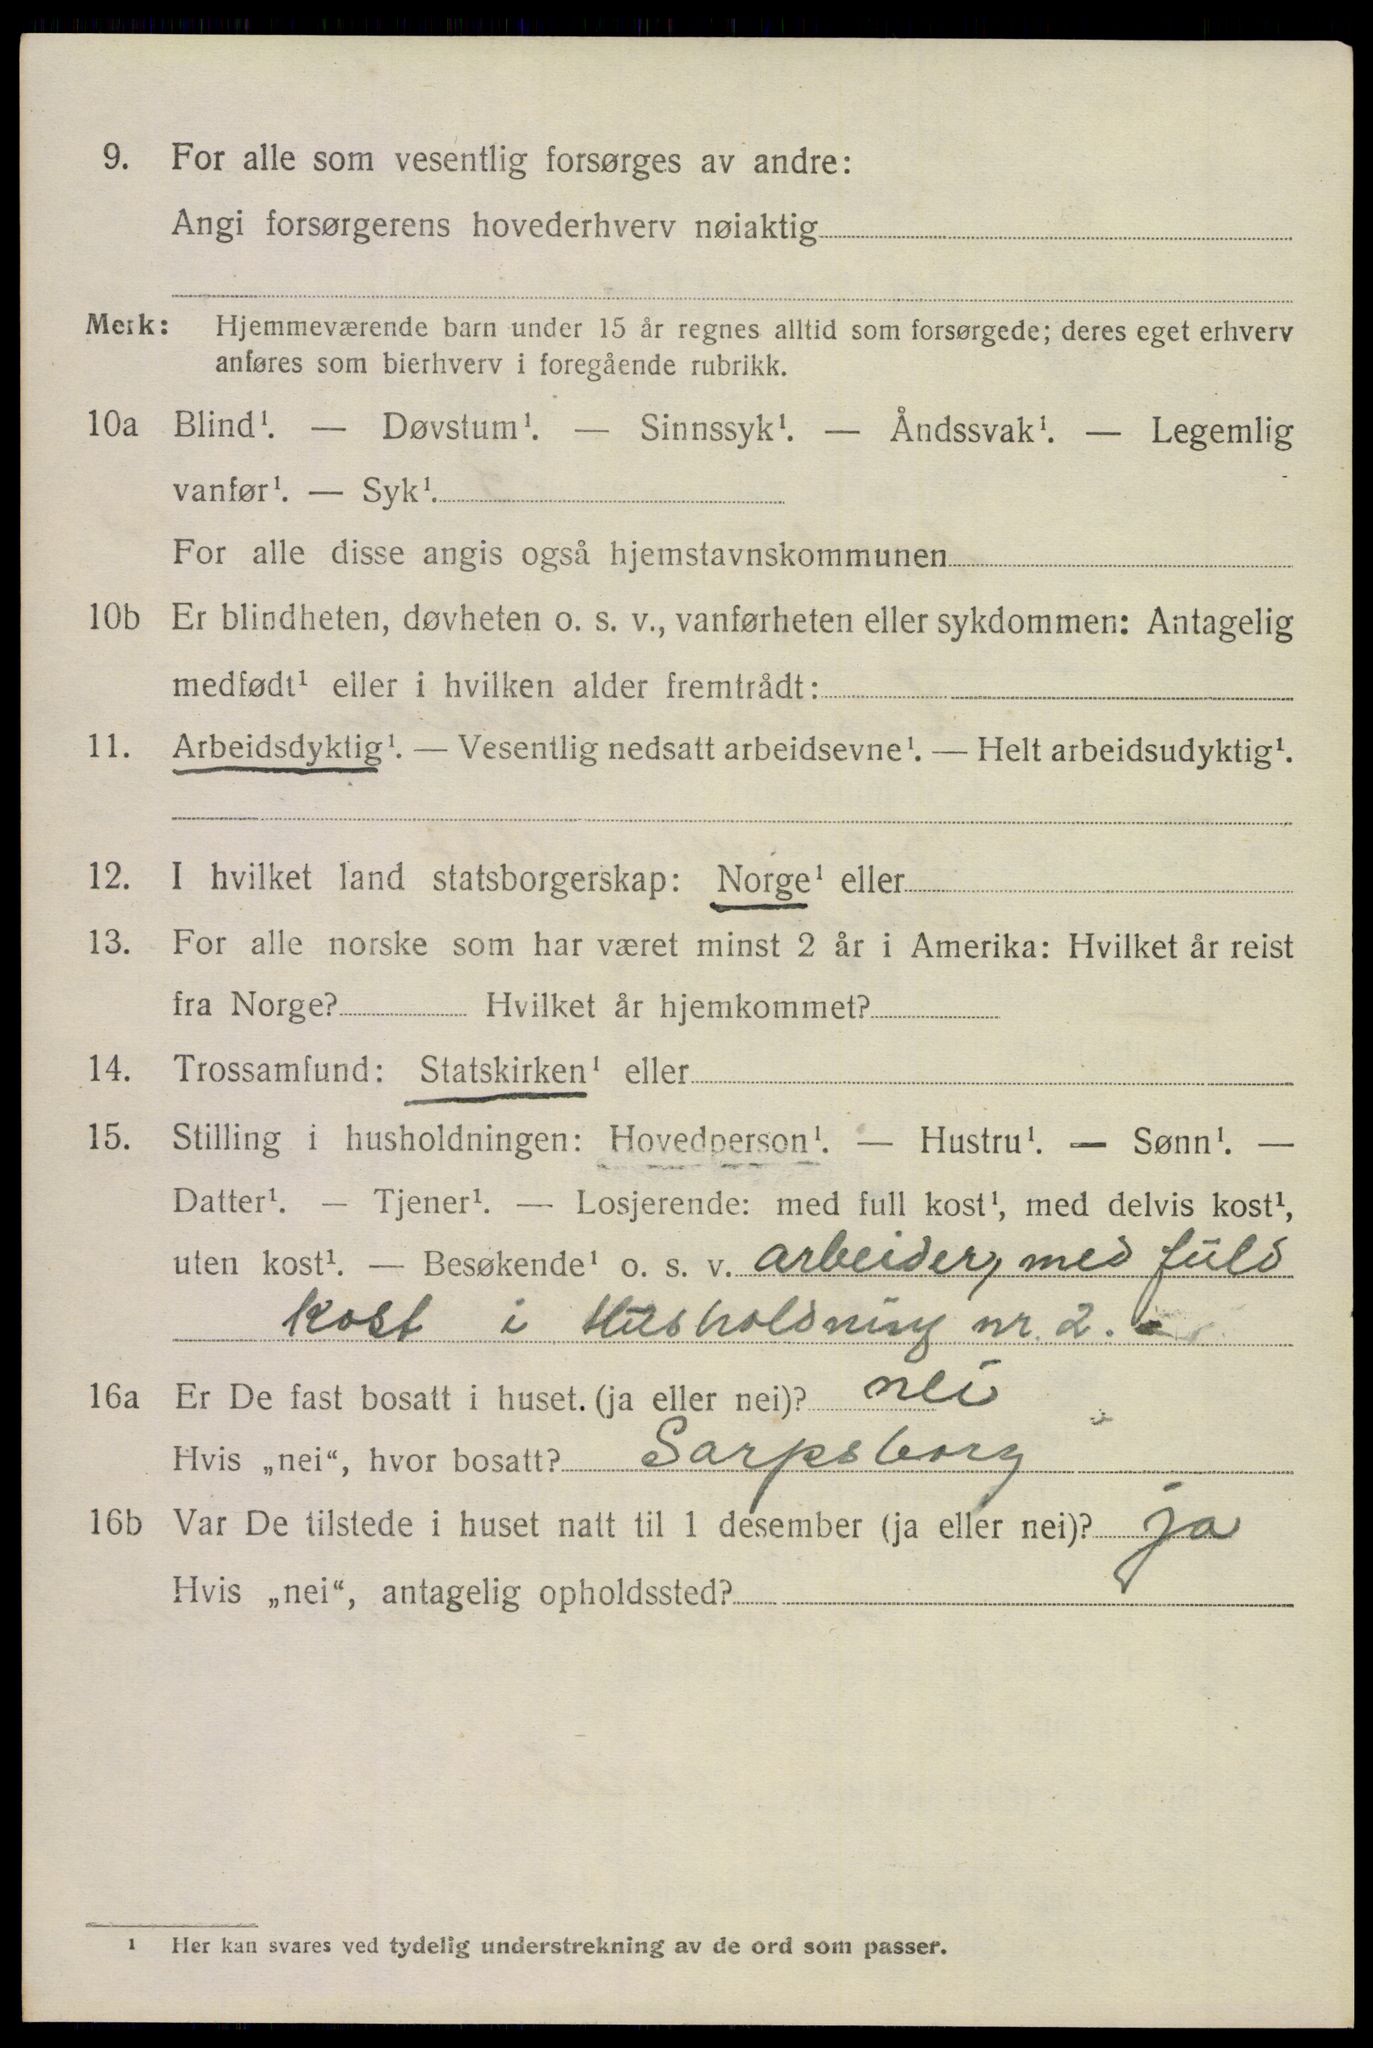 9. For alle som vesentlig forsørges av andre:
Angi forsørgerens hovederhverv nøiaktig
Merk: Hjemmeværende barn under 15 år regnes alltid som forsørgede; deres eget erhverv
anføres som bierhverv i foregående rubrikk.
10a Blind¹. — Døvstum¹. — Sinnssyk¹. — Åndssvak¹. — Legemlig
vanfør¹. — Syk¹.
For alle disse angis også hjemstavnskommunen
10b Er blindheten, døvheten o. s. v., vanførheten eller sykdommen: Antagelig
medfødt¹ eller i hvilken alder fremtrådt:
11. Arbeidsdyktig¹. — Vesentlig nedsatt arbeidsevne¹. — Helt arbeidsudyktig¹.
12. I hvilket land statsborgerskap: Norge¹ eller
13. For alle norske som har været minst 2 år i Amerika: Hvilket år reist
fra Norge? Hvilket år hjemkommet?
14. Trossamfund: Statskirken¹ eller
15. Stilling i husholdningen: Hovedperson¹. — Hustru¹. — Sønn¹. —
Datter¹. — Tjener¹. — Losjerende: med full kost¹, med delvis kost¹,
uten kost¹. — Besøkende¹ o. s. v. arbeider, med fuld
kost i Husholdning nr. 2.
16a Er De fast bosatt i huset. (ja eller nei)? nei
Hvis „nei“, hvor bosatt? Sarpsborg
16b Var De tilstede i huset natt til 1 desember (ja eller nei)? ja
Hvis „nei“, antagelig opholdssted?
¹ Her kan svares ved tydelig understrekning av de ord som passer.